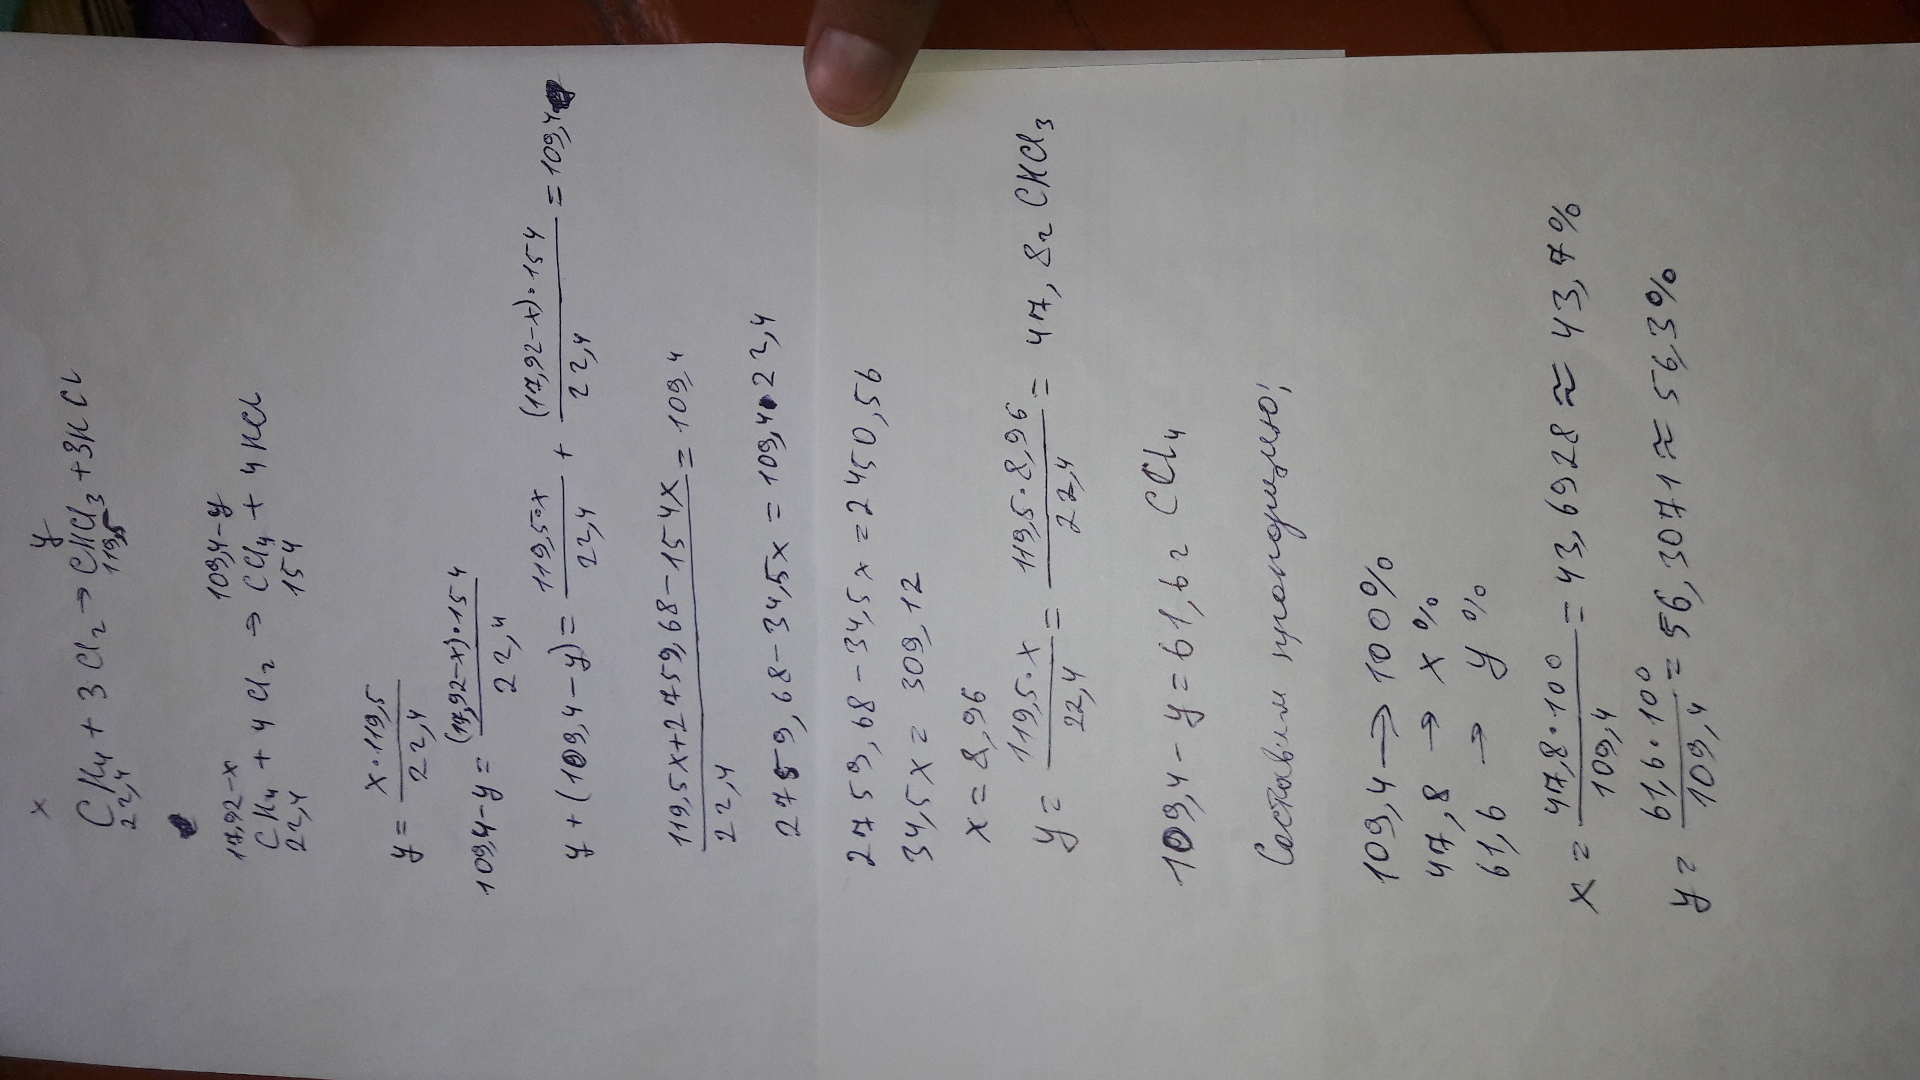 x y
CH₄ + 3Cl₂ → CHCl₃ + 3HCl
22,4 119,5
17,92-x 109,4-y
CH₄ + 4Cl₂ → CCl₄ + 4HCl
22,4 154
y = x·119,5 / 22,4
109,4-y = (17,92-x)·154 / 22,4
y + (109,4-y) = 119,5·x / 22,4 + (17,92-x)·154 / 22,4 = 109,4
119,5x+2759,68-154x / 22,4 = 109,4
2759,68-34,5x = 109,4·22,4
2759,68-34,5x = 2450,56
34,5x = 309,12
x = 8,96
y = 119,5·x / 22,4 = 119,5·8,96 / 22,4 = 47,8г CHCl₃
109,4-y = 61,6г CCl₄
Составим пропорцию:
109,4 → 100%
47,8 → x %
61,6 → y %
x = 47,8·100 / 109,4 = 43,6928 ≈ 43,7%
y = 61,6·100 / 109,4 = 56,3071 ≈ 56,3%